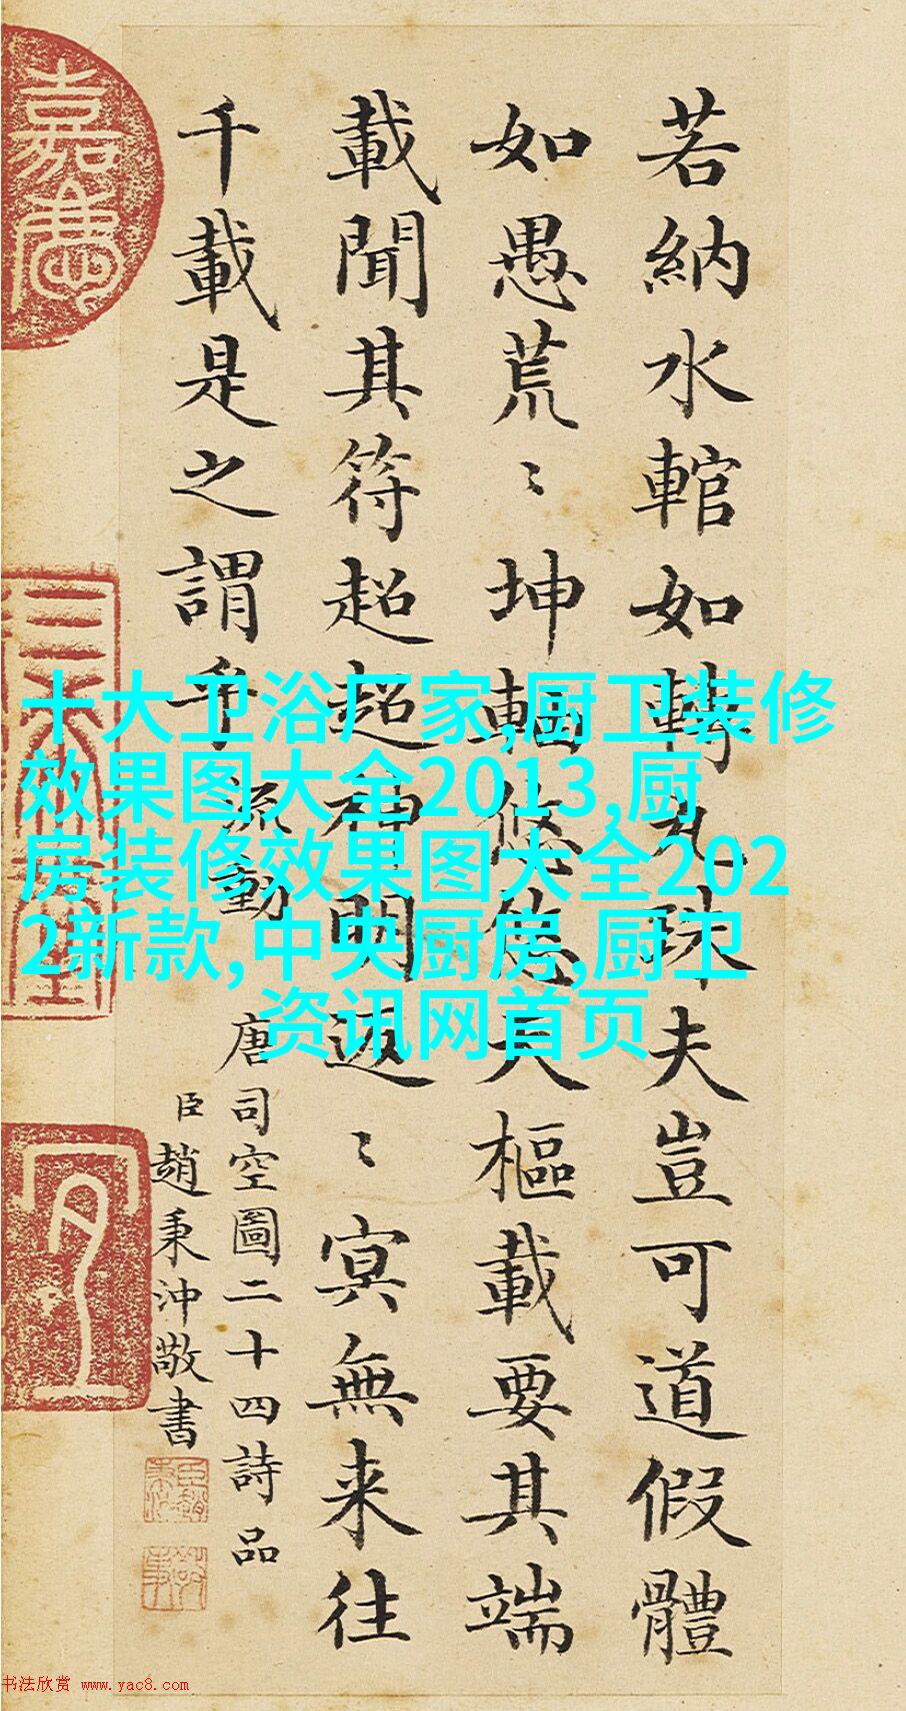 若納水輨如轉丸珠夫豈可道假體
如愚荒〻坤軸悠悠天樞載要其端
載聞其符超超神明返〻冥無来往
千載是之謂乎 流動
唐司空圖二十四詩品
臣趙秉沖敬書
嘉慶
十大卫浴厂家,厨卫装修
效果图大全2013,厨
房装修效果图大全202
2新款,中央厨房,厨卫
资讯网首页
书法欣赏 www.yac8.com